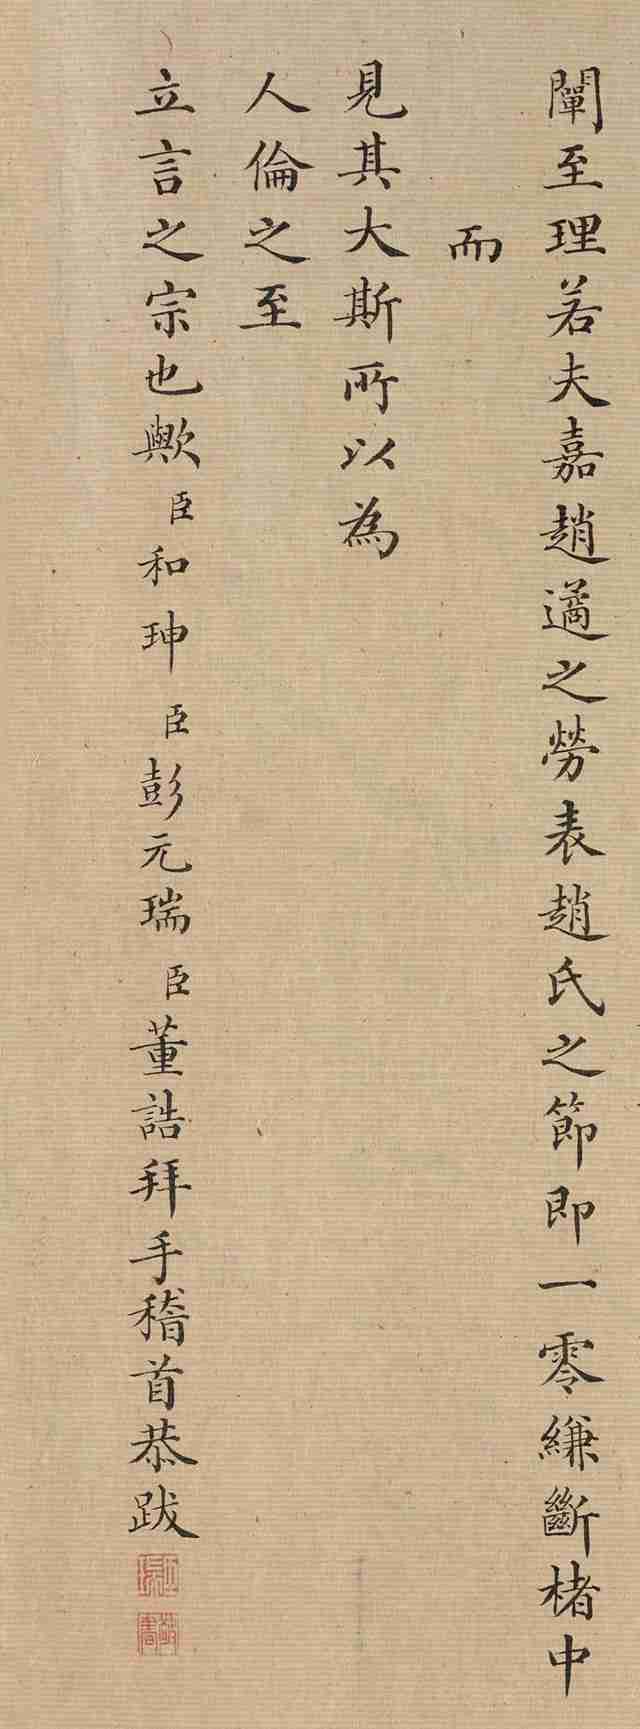 闡至理若夫嘉趙遹之勞表趙氏之節即一零縑斷楮中
而
見其大斯所以為
人倫之至
立言之宗也歟臣和珅臣彭元瑞臣董誥拜手稽首恭跋